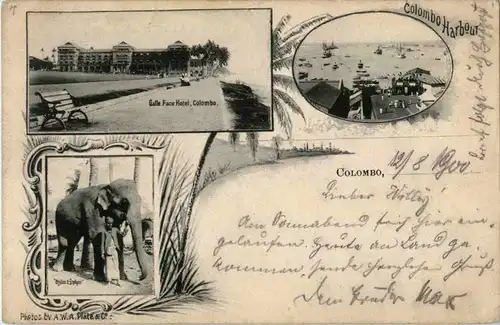 Colombo Harbour
Galle Face Hotel, Colombo.
COLOMBO, 12/8 1900
Lieber Willy!
Am Sonnabend früh hier ein-
gelaufen. Heute an Land ge-
kommen sende herzlichen Gruß
Dein Bruder Max
Photos by A.W.A. Plâté & Co.